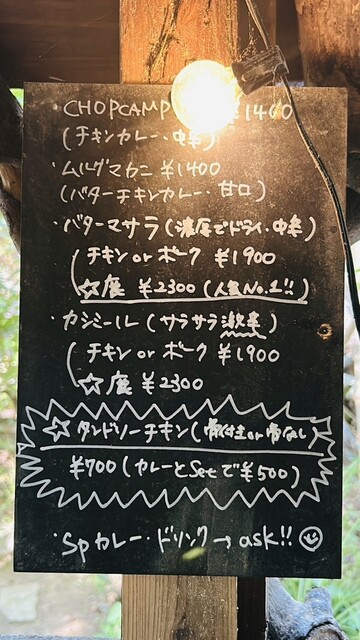 ・CHOPCAMP ¥1400
(チキンカレー・中辛)
・ムルグマカニ ¥1400
(バターチキンカレー・甘口)
・バターマサラ(濃厚でドライ・中辛)
チキン or ポーク ¥1900
☆展 ¥2300 (人気No.1!!)
・カジール(サラサラ激辛)
チキン or ポーク ¥1900
☆展 ¥2300
☆タンドリーチキン(骨付き or 骨なし)
¥700(カレーとSetで¥500)
・Spカレー・ドリンク→ask!!